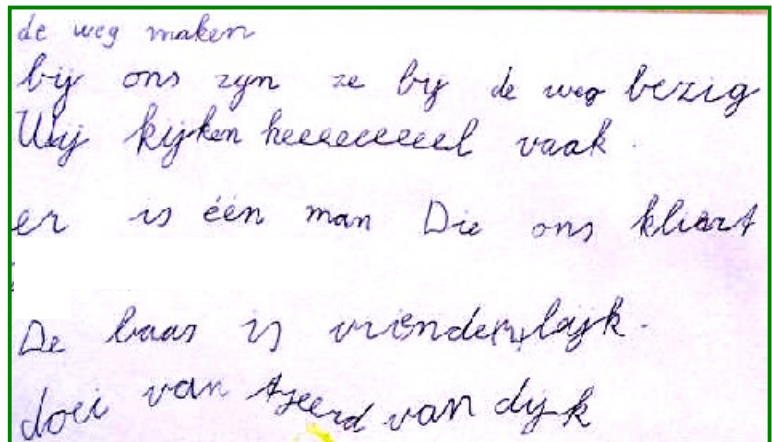 de weg maken
bij ons zijn ze bij de weg bezig
Wij kijken heeeeeeeeel vaak.
er is één man Die ons kliert
De baas is vriendenlajk.
doei van tjeerd van dijk